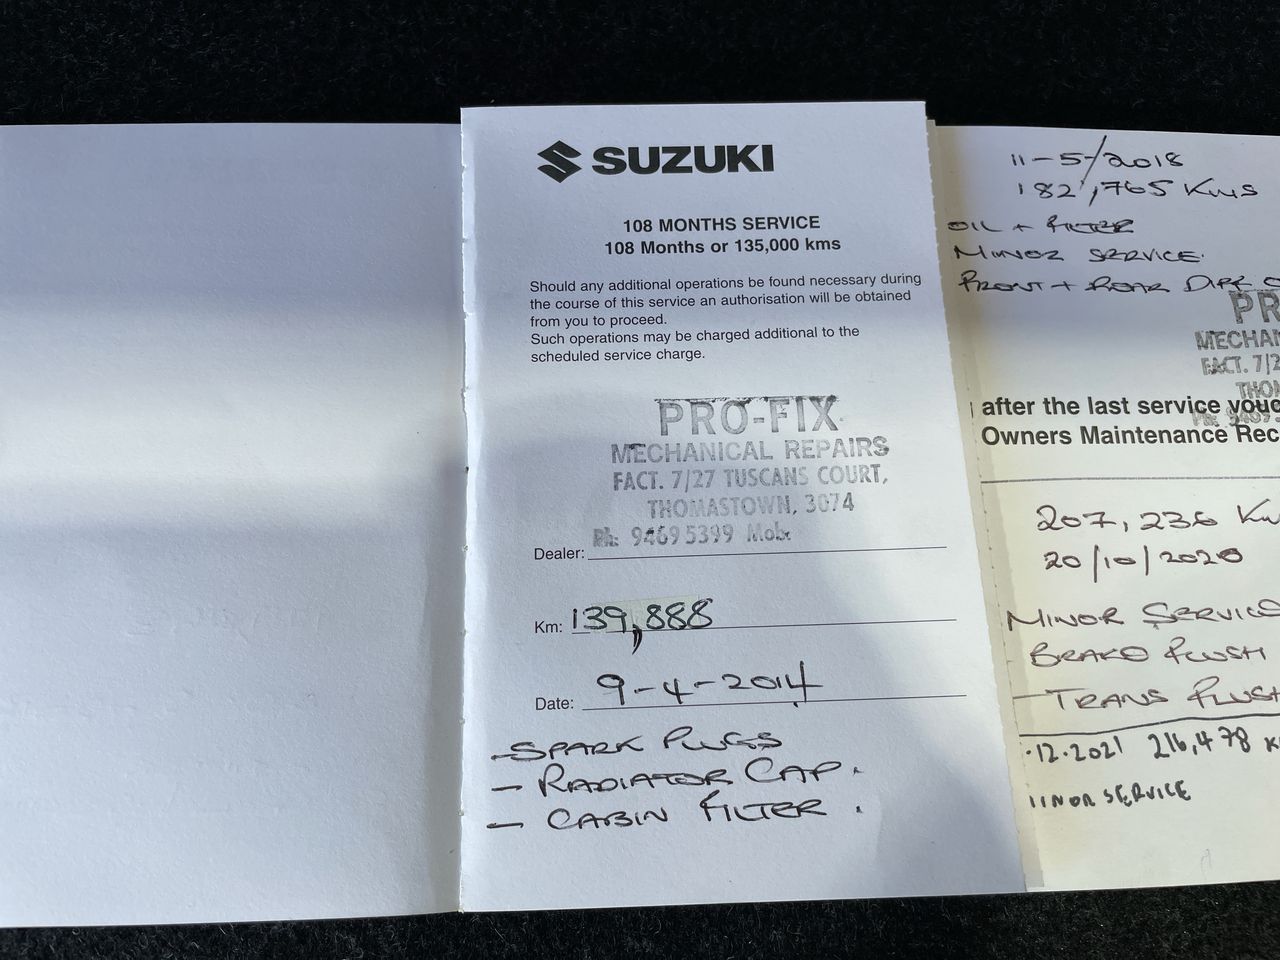 SUZUKI
108 MONTHS SERVICE
108 Months or 135,000 kms
Should any additional operations be found necessary during
the course of this service an authorisation will be obtained
from you to proceed.
Such operations may be charged additional to the
scheduled service charge.
PRO-FIX
MECHANICAL REPAIRS
FACT. 7/27 TUSCANS COURT,
THOMASTOWN, 3074
Ph: 9469 5399 Mob:
Dealer:
Km: 139,888
Date: 9-4-2014
- SPARK PLUGS
- RADIATOR CAP.
- CABIN FILTER.
11-5/2018
182,765 Kms
OIL + FILTER
MINOR SERVICE.
FRONT + REAR DIFF
PR
MECHAN
FACT. 7/2
THO
Ph: 9469
after the last service vouc
Owners Maintenance Rec
207,236 Km
20/10/2020
MINOR SERVICE
- BRAKE FLUSH
- TRANS FLUSH
.12.2021 216,478 K
MINOR SERVICE